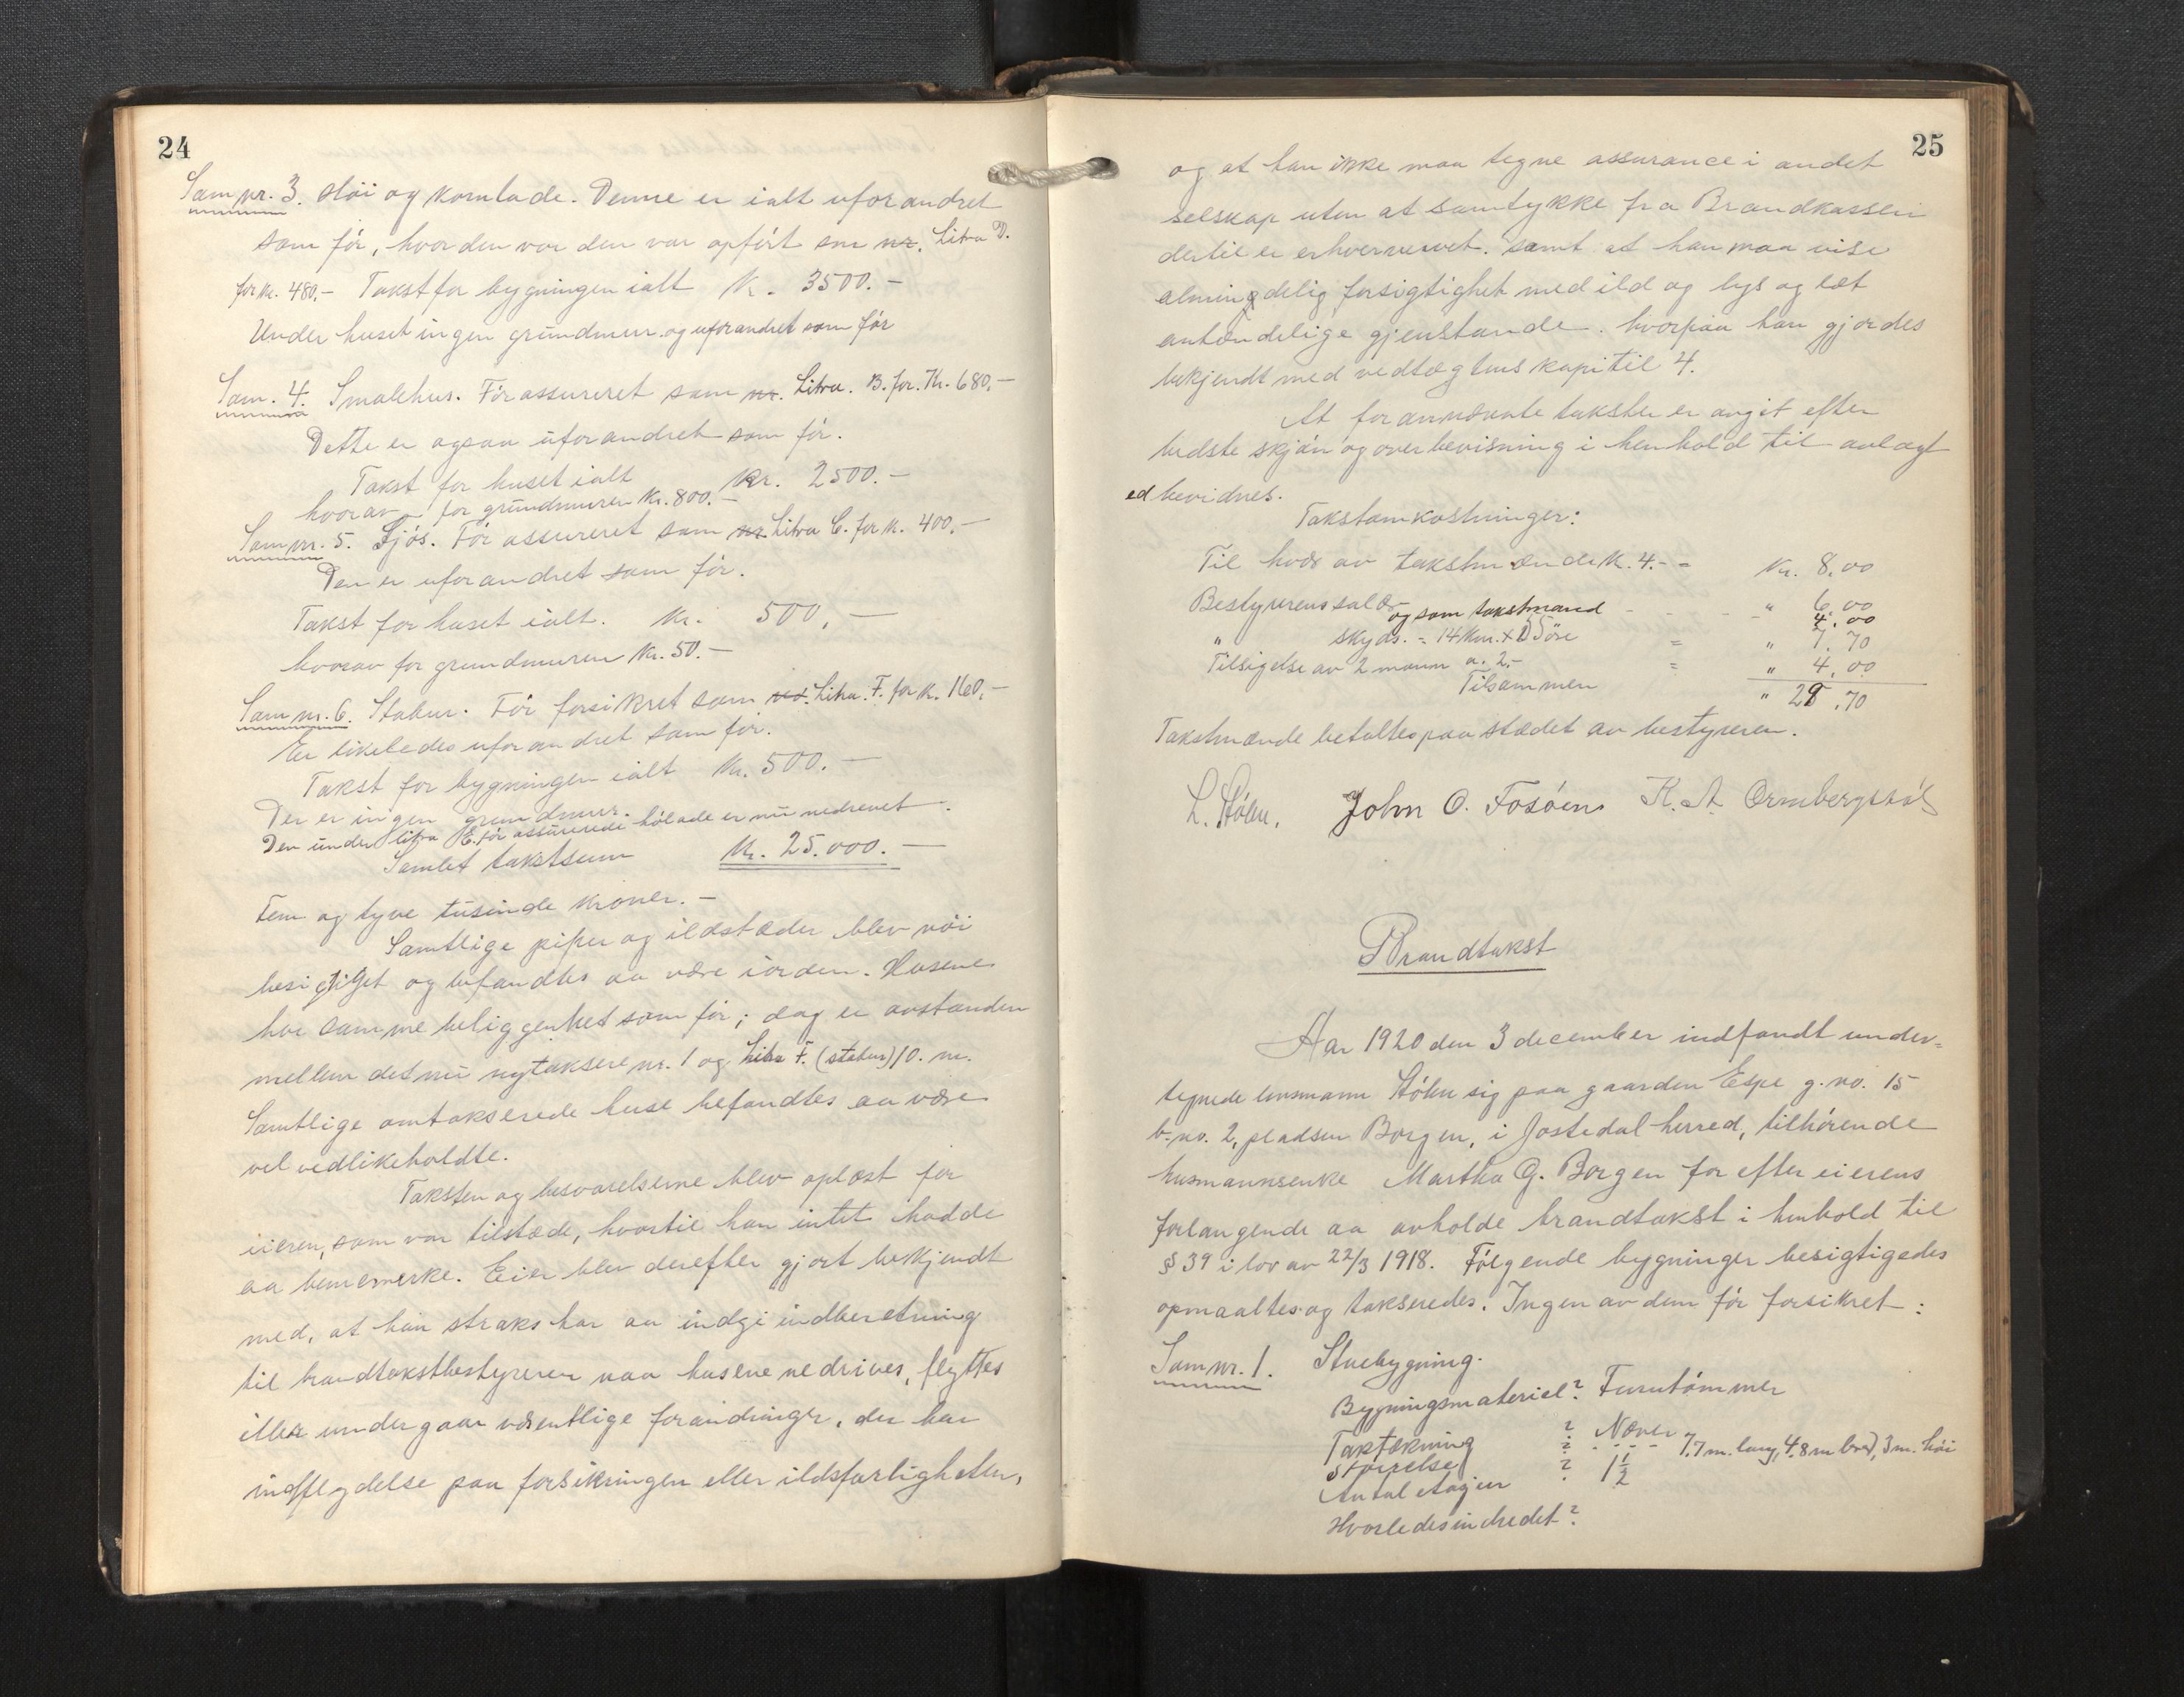 24
Som nr. 3. Höi og kornlade. Denne er ialt uforandret
som før, hvor den var den var opført som nr. Litra D.
for kr. 480.- Takst for bygningen ialt Kr. 3500.-
Under huset ingen grundmur og uforandret som før
Som. 4. Smalehus. Før assureret som nr. Litra. B. for. Kr. 680.-
Dette er ogsaa uforandret som før.
Takst for huset ialt Kr. 2500.-
hvorav for grundmuren Kr. 800.-
Som nr. 5. Fjøs. Før assureret som nr. Litra C. for K. 400.-
Den er uforandret som før.
Takst for huset ialt. Kr. 500,-
hvorav for grundmuren Kr. 50.-
Som nr. 6. Stabur. Før forsikret som Litra. F. for K. 160.-
Er likeledes uforandret som før.
Takst for bygningen ialt Kr. 500.-
Der er ingen grundmur.
Den under litra E. før assurerede hølade er nu nedrevet.
Samlet takstsum Kr. 25.000.-
Fem og tyve tusinde kroner.-
Samtlige piper og ildstæder blev nöi
besigtiget og befandtes aa være iorden. Husene
har samme beliggenhet som før; dog er avstanden
mellem det nu nytaksere nr. 1 og Litra F. (stabur) 10. m.
Samtlige omtakserede huse befandtes aa være
vel vedlikeholdte.
Taksten og besvarelserne blev oplæst for
eieren, som var tilstæde, hvortil han intet hadde
aa bemerke. Eier blev derefter gjort bekjendt
med, at han straks har aa indgi indberetning
til brandtakstbestyreren naar husene nedrives, flyttes
eller undergaar væsentlige forandringer, der har
indflydelse paa forsikringen eller ildsfarligheten,
25
og at han ikke maa tegne assurance i andet
selskap uten at samtykke fra Brandkassen
dertil er erhvervet. samt at han maa vise
almindelig forsigtighet med ild og lys og læt
antændelige gjenstande. hvorpaa han gjordes
bekjendt med vedtægtens kapitil 4.
At forannævnte takster er angit efter
bedste skjøn og overbevisning i henhold til avlagt
ed bevidnes.
Takstomkostninger:
Til hver av takstmændene K. 4.- = Kr. 8,00
Bestyrerens salær - - - " 6,00
og som takstmand - " 4,00
" skyds. = 14 Km. x 55 öre = " 7.70
Tilsigelse av 2 mann a. 2.- = " 4,00
Tilsammen " 29,70
Takstmænde betaltes paa stædet av bestyreren.
L. Stölen. John O. Fosøen K. A. Ormbergstøl
Brandtakst
Aar 1920 den 3 december indfandt under-
tegnede lensmann Stølen sig paa gaarden Espe g. no. 15
b. no. 2, pladsen Borgen, i Jostedal herred, tilhørende
husmannsenke Martha G. Borgen for efter eierens
forlangende aa avholde brandtakst i henhold til
§ 39 i lov av 22/3 1918. Følgende bygninger besigtigedes
opmaaltes og takseredes. Ingen av dem før forsikret:
Som nr. 1. Stuebygning.
Bygningsmateriel? Furutømmer
Taktækning ? Næver
Størrelse ? - - - - 7.7 m. lang, 4.8 m bred, 3 m. høi
Antal etager ? 1 1/2
Hvorledes indredet?